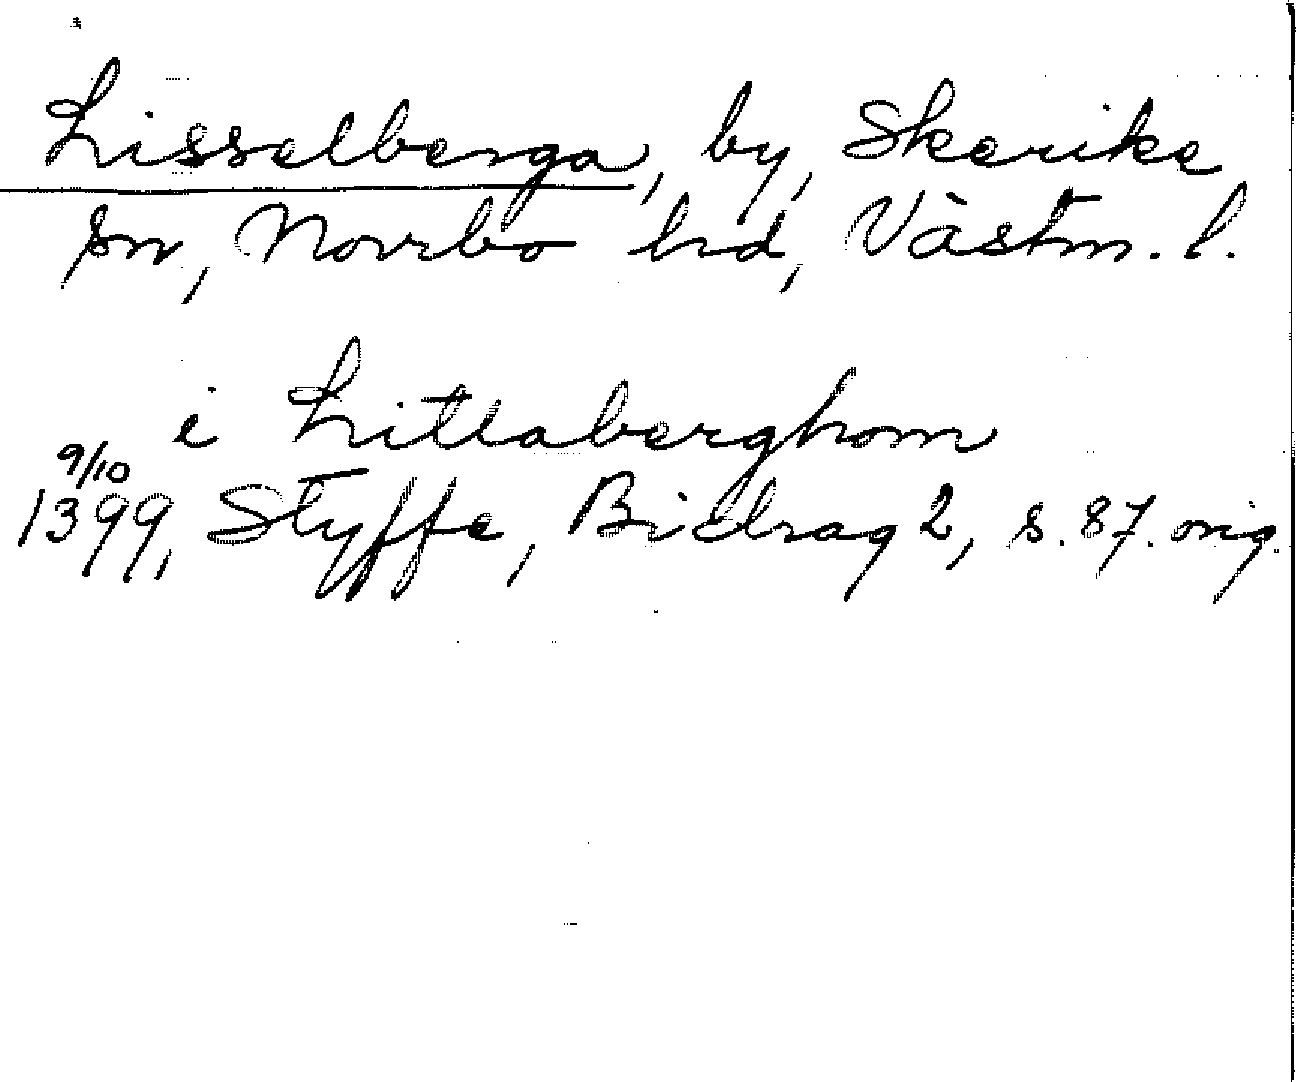 Lisselberga, by, Skerike
sn, Norrbo hd, Västm. l.
i Littlaberghom
9/10
1399, Styffe, Bidrag 2, s. 87. orig.